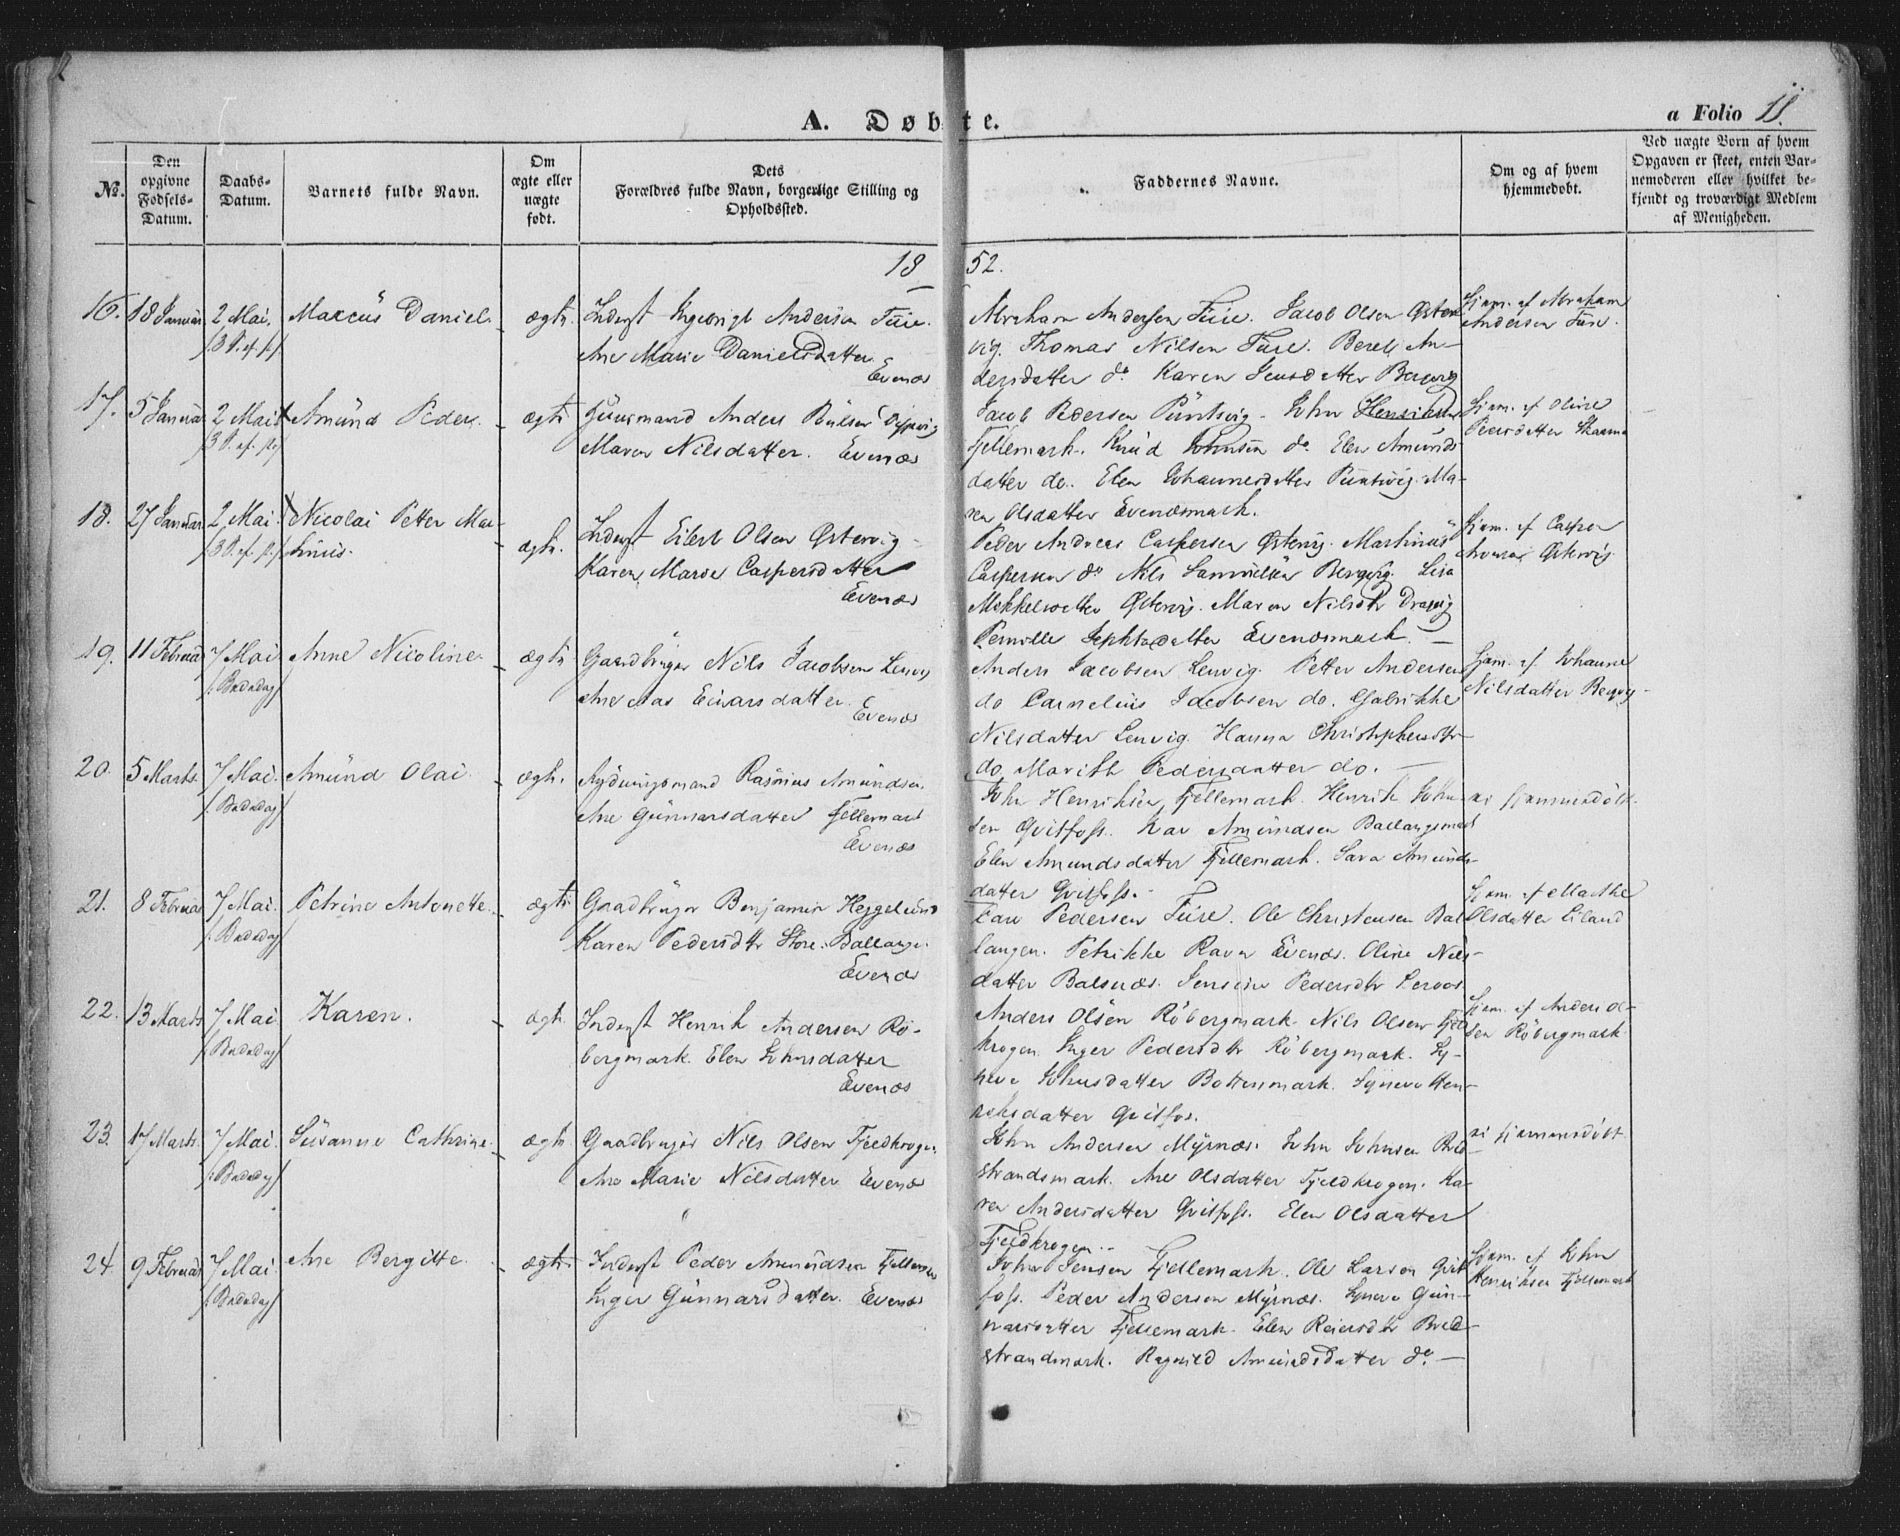 A. Døbte.
a Folio 11.
No.
Den opgivne Fødsels-Datum.
Daabs-Datum.
Barnets fulde Navn.
Om ægte eller uægte født.
Dets Forældres fulde Navn, borgerlige Stilling og Opholdssted.
Faddernes Navne.
Om og af hvem hjemmedøbt.
Ved uægte Børn af hvem Opgaven er skeet, enten Barnemoderen eller hvilket bekjendt og troværdigt Medlem af Menigheden.
1852.
16. 18 Januar 2 Mai. Marcus Daniel. ægte.
/3 S. ef. p./
Inderst Ingebrigt Andersen Fure.
Ane Marie Danielsdatter
Evenæs
Abraham Andersen Fure. Jacob Olsen Øster
vig. Thomas Nilsen Fure. Beret An-
dersdatter do. Karen Jensdatter Bergvig
Hjem. af Abraham
Andersen Fure.
17. 5 Januar 2 Mai Amund Peder. ægte
/3 S. ef. p./
Huusmand Anders
Maren Nilsdatter. Evenæs
Jacob Pedersen Puntsvig. John Henriksen
Fjellemark. Knud Johnsen do. Elen Amunds
datter do. Elen Johannesdatter Puntsvig. Ma-
ren Olsdatter Evenæsmark.
Hjem. af Oline
Pedersdatter
18. 27 Januar 2 Mai Nicolai Petter Mar-
tinus. ægte.
/3 S. ef. p./
Inderst Eilert Olsen Østervig
Karen Marie Caspersdatter
Evenæs
Peder Andreas Caspersen Østervig. Martinus
Caspersen do Nils Samuelsen Bergvig. Lisa
Mikkelsdatter Østervig. Maren Nilsdtr Dragvig
Pernille Jephtadatter Evenæsmark.
Hjem. af Casper
Østervig
19. 11 Februar 7 Mai Anne Nicoline ægte
/: Bededag/
Gaardbruger Nils Jacobsen Lenvig
Ane Einarsdatter.
Evenæs
Anders Jacobsen Lenvig. Petter Andersen
do Carnelius Jacobsen do. Gabrikke
Nilsdatter Lenvig. Hanna Christophersdtr
do Marith Pedersdatter do.
Hjem. af Johanne
Nilsdatter Bergvig
20. 5 Marts. 7 Mai Amund Olai. ægte.
/: Bededag/
Rydningsmand Rasmus Amundsen
Ane Gunnarsdatter Fjellemark
Evenæs
John Henriksen Fjellemark. Henrik John-
sen Qvitfoss. Amundsen Ballangsmark
Elen Amundsdatter Fjellemark. Sara Amunds-
datter Qvitfoss.
ei hjemmedøbt.
21. 8 Februar 7 Mai. Petrine Antonette. ægte
/: Bededag/
Gaardbruger Benjamin Heggelund
Karen Pedersdtr Store Ballange.
Evenæs
Pedersen Fure. Ole Christensen Bal
langen. Petrikke Evenæs. Oline Nils-
datter Balsnæs. Pedersdtr
Hjem. af Marthe
Olsdatter
22. 13 Marts 7 Mai Karen. ægte
/: Bededag/
Inderst Henrik Andersen Rö-
bergmark. Elen Johnsdatter
Evenæs
Anders Olsen Röbergmark. Nils Olsen Fjeld
krogen. Inger Pedersdtr Röbergmark. Sy-
neve Johnsdatter Bottenmark. Syneve Hen-
riksdatter Qvitfos.
Hjem. af Anders Ol-
sen Röbergmark
23. 17 Marts. 7 Mai Susanne Cathrine. ægte.
/: Bededag/
Gaardbruger Nils Olsen Fjeldkrogen.
Ane Marie Nilsdatter Evenæs
John Andersen Myrnæs. John Johnsen Bred-
strandsmark. Ane Olsdatter Fjeldkrogen. Ka-
ren Andersdatter Qvitfoss. Elen Olsdatter
Fjeldkrogen.
ei hjemmedöbt
24. 9 Februar 7 Mai Ane Bergitte. ægte.
/: Bededag/
Inderst Peder Amundsen Fjellemark
Inger Gunnarsdatter. Evenæs
John Jensen Fjellemark. Ole Larsen Qvit
foss. Peder Andersen Myrnæs. Syneve Gun-
narsdatter Fjellemark. Elen Reiersdtr Bred-
strandmark. Ragnild Amundsdatter do.
Hjem. af John
Henriksen Fjellemark